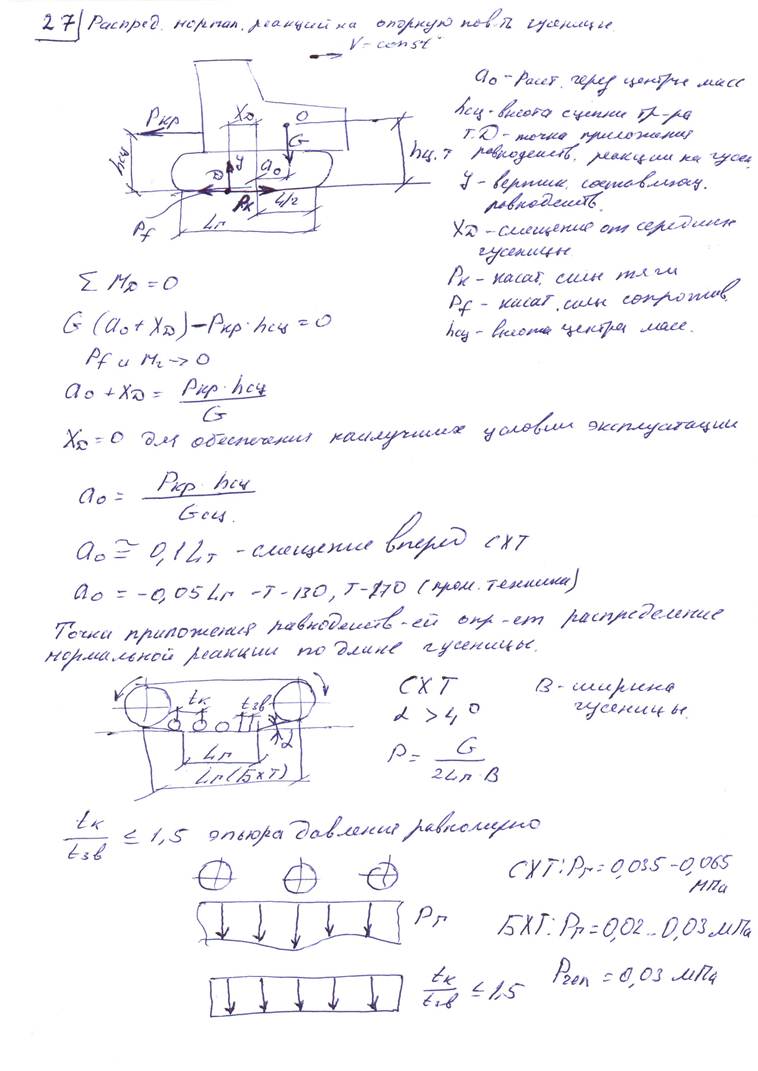 27 Распред. нормал. реакций на опорную пов-ть гусеницы.
V-const
a₀ - расст. перед центры масс
hсц - высота сцепки тр-ра
т. D - точка приложения
равнодейств. реакции на гусен
У - вертик. составляющ.
равнодейств.
XD - смещение от середины
гусеницы
Pк - касат. силы тяги
Pf - касат. силы сопротив.
hсц - высота центра масс.
Pкр
hсц
XD
O
G
D
У
a₀
hц.т
Pf
Pк
L/2
Lг
Σ MD = 0
G (a₀ + XD) - Pкр · hсц = 0
Pf и Mг → 0
a₀ + XD = Pкр · hсц / G
XD = 0 для обеспечения наилучших условий эксплуатации
a₀ = Pкр · hсц / Gсц.
a₀ ≅ 0,1 Lт - смещение вперед СХТ
a₀ = -0,05 Lг - Т-130, Т-170 (пром. техника)
Точки приложения равнодейств-ей опр-ет распределение
нормальной реакции по длине гусеницы.
tк
tзв
α
Lг
Lг (БХТ)
СХТ
α > 4°
P = G / 2Lг · B
B - ширина
гусеницы.
tк / tзв ≤ 1,5 эпьюра давления равномерно
Pг
СХТ: Pг = 0,035 - 0,065
МПа
БХТ: Pг = 0,02 .. 0,03 МПа
tк / tзв ≤ 1,5
= 0,03 МПа